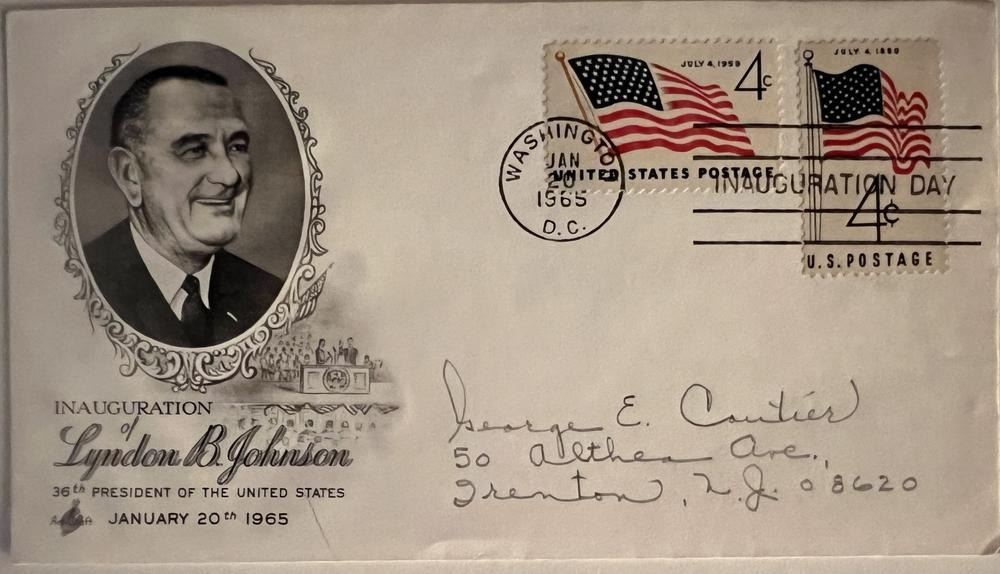 JULY 4, 1959
4c
UNITED STATES POSTAGE
JULY 4, 1960
4¢
U.S. POSTAGE
WASHINGTON
JAN
20
1965
D.C.
INAUGURATION DAY
INAUGURATION
of
Lyndon B. Johnson
36th PRESIDENT OF THE UNITED STATES
JANUARY 20th 1965
George E. Coutier
50 Althea Ave.,
Trenton, N.J. 08620